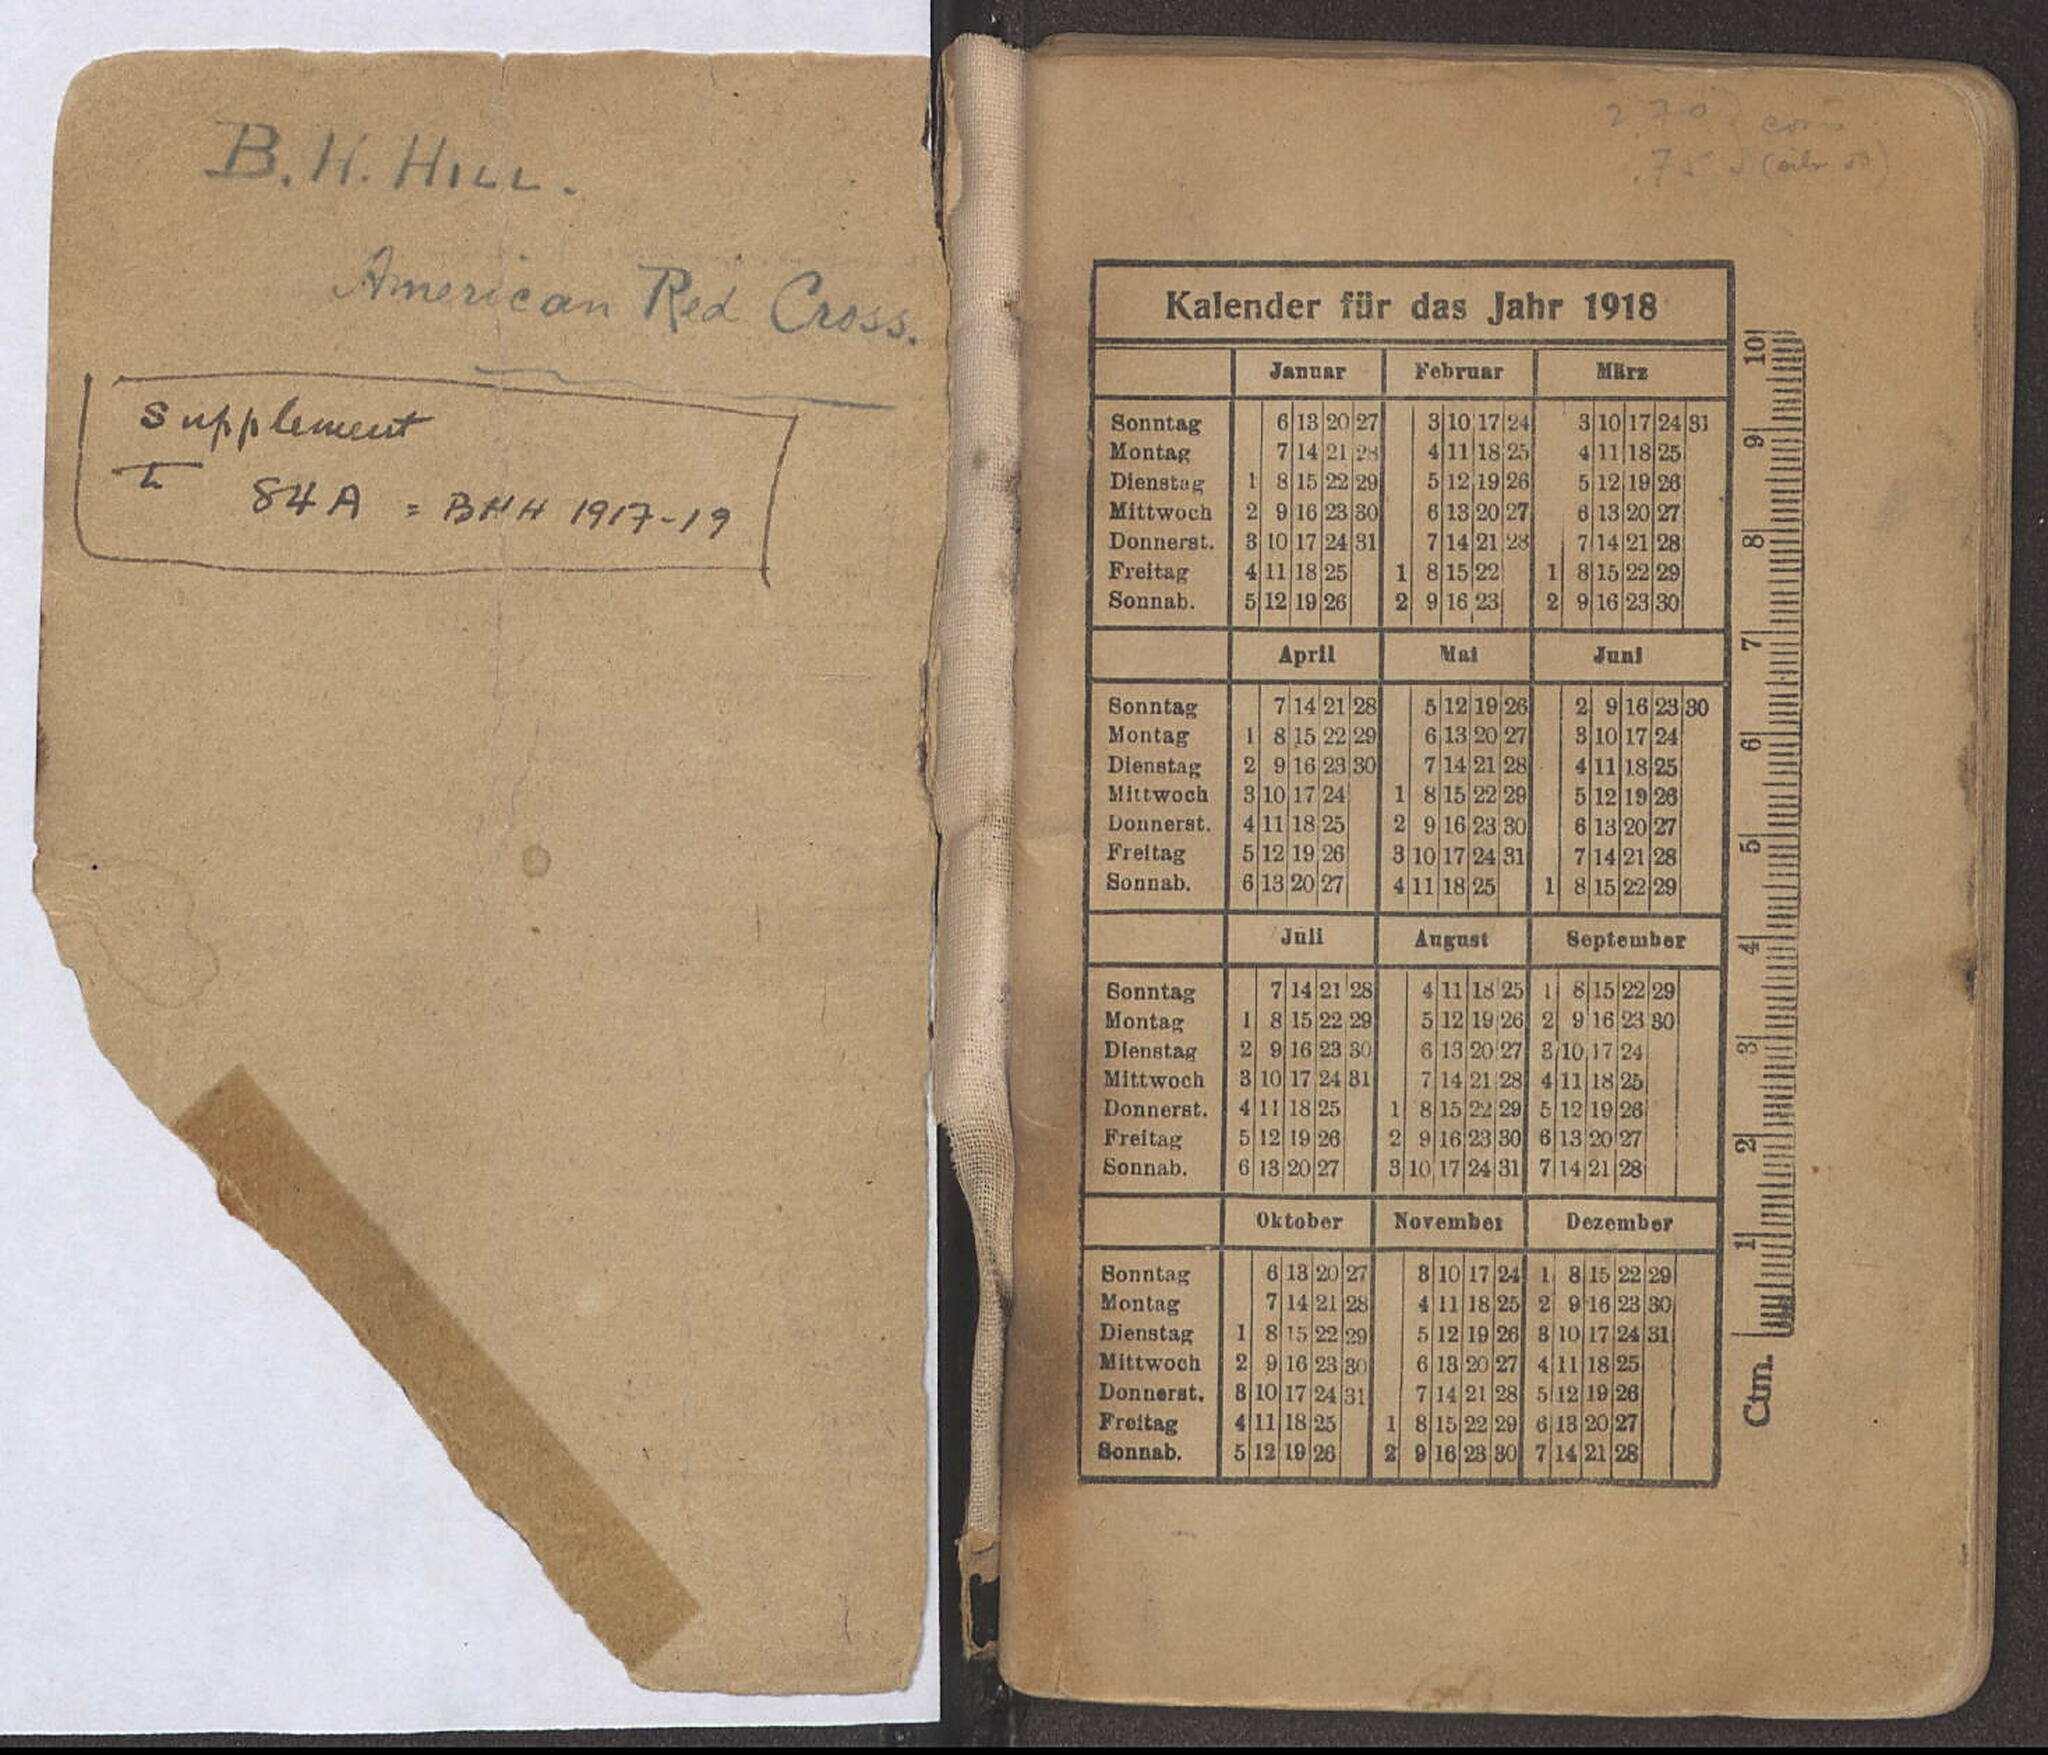 B. H. HILL.
American Red Cross.
Supplement
I 84A = BHH 1917-19
2.70
.75
Kalender für das Jahr 1918
Januar Februar März
Sonntag 6 13 20 27 3 10 17 24 3 10 17 24 31
Montag 7 14 21 28 4 11 18 25 4 11 18 25
Dienstag 1 8 15 22 29 5 12 19 26 5 12 19 26
Mittwoch 2 9 16 23 30 6 13 20 27 6 13 20 27
Donnerst. 3 10 17 24 31 7 14 21 28 7 14 21 28
Freitag 4 11 18 25 1 8 15 22 1 8 15 22 29
Sonnab. 5 12 19 26 2 9 16 23 2 9 16 23 30
April Mai Juni
Sonntag 7 14 21 28 5 12 19 26 2 9 16 23 30
Montag 1 8 15 22 29 6 13 20 27 3 10 17 24
Dienstag 2 9 16 23 30 7 14 21 28 4 11 18 25
Mittwoch 3 10 17 24 1 8 15 22 29 5 12 19 26
Donnerst. 4 11 18 25 2 9 16 23 30 6 13 20 27
Freitag 5 12 19 26 3 10 17 24 31 7 14 21 28
Sonnab. 6 13 20 27 4 11 18 25 1 8 15 22 29
Juli August September
Sonntag 7 14 21 28 4 11 18 25 1 8 15 22 29
Montag 1 8 15 22 29 5 12 19 26 2 9 16 23 30
Dienstag 2 9 16 23 30 6 13 20 27 3 10 17 24
Mittwoch 3 10 17 24 31 7 14 21 28 4 11 18 25
Donnerst. 4 11 18 25 1 8 15 22 29 5 12 19 26
Freitag 5 12 19 26 2 9 16 23 30 6 13 20 27
Sonnab. 6 13 20 27 3 10 17 24 31 7 14 21 28
Oktober November Dezember
Sonntag 6 13 20 27 3 10 17 24 1 8 15 22 29
Montag 7 14 21 28 4 11 18 25 2 9 16 23 30
Dienstag 1 8 15 22 29 5 12 19 26 3 10 17 24 31
Mittwoch 2 9 16 23 30 6 13 20 27 4 11 18 25
Donnerst. 3 10 17 24 31 7 14 21 28 5 12 19 26
Freitag 4 11 18 25 1 8 15 22 29 6 13 20 27
Sonnab. 5 12 19 26 2 9 16 23 30 7 14 21 28
Ctm. 1 2 3 4 5 6 7 8 9 10